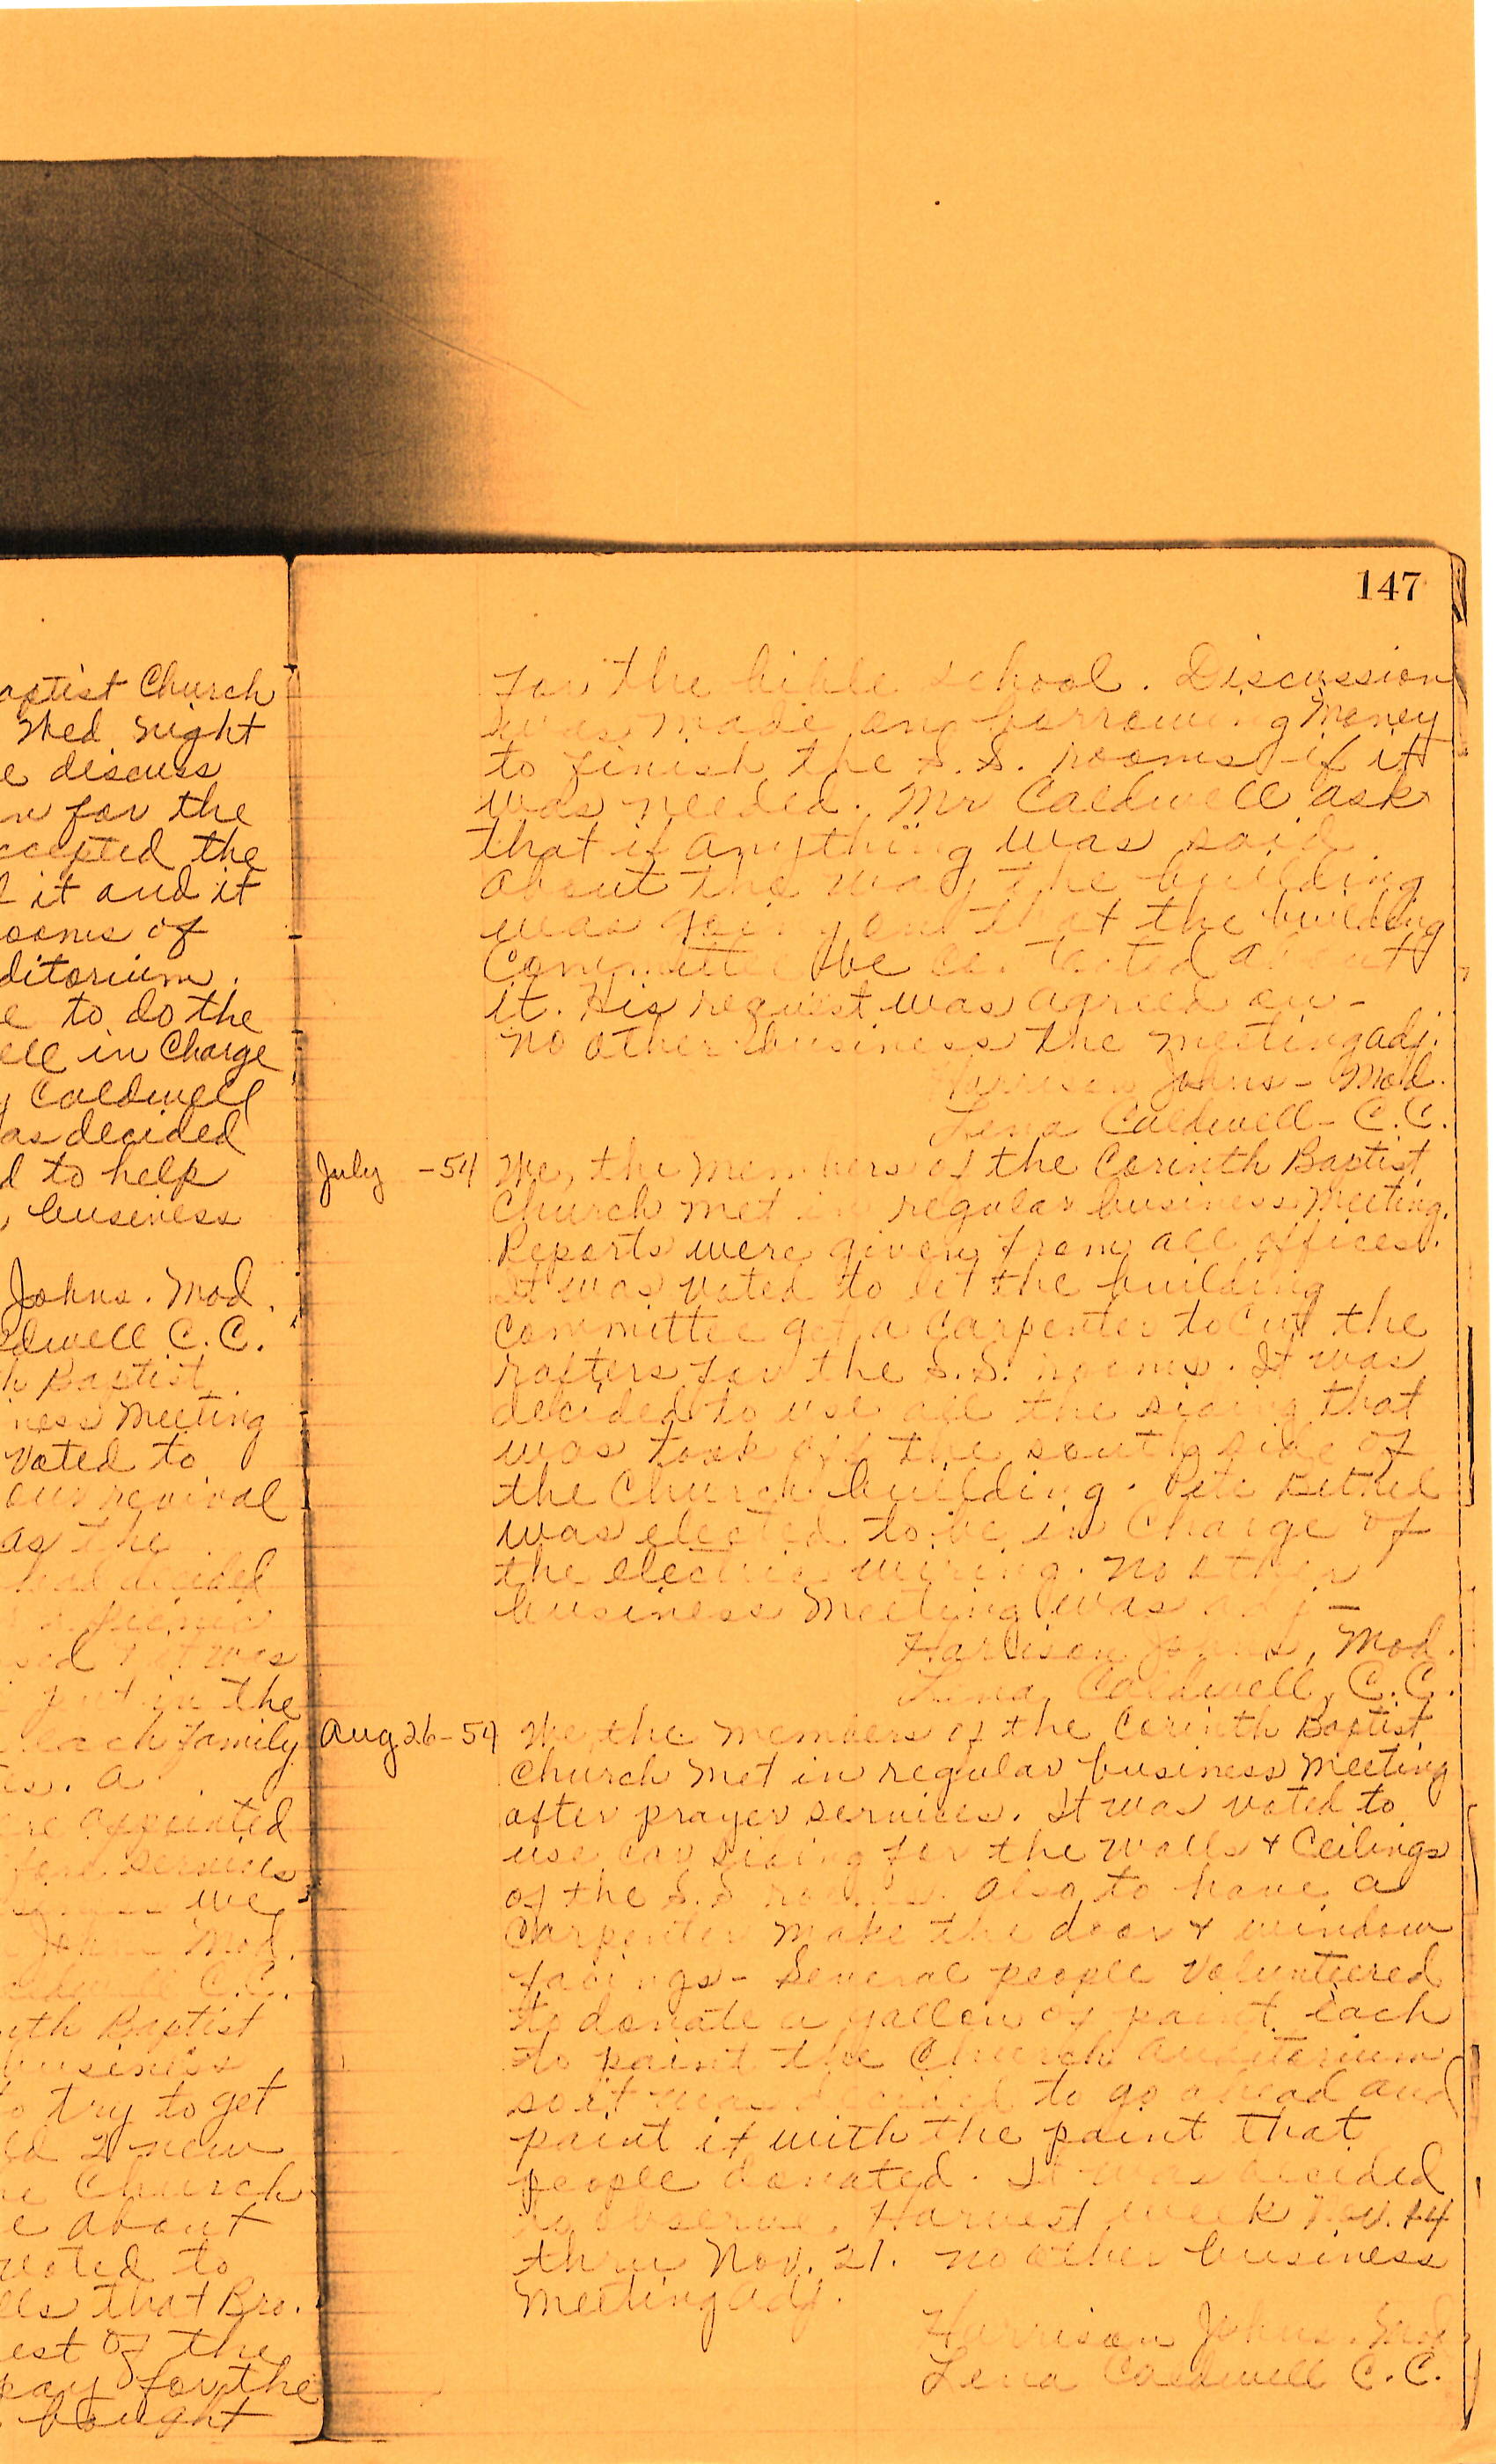 aptist Church
Wed night
e discuss
n for the
ccepted the
l it and it
ooms of
ditorium.
e to do the
ell in Charge
y Caldwell
as decided
d to help
, business
Johns. Mod.
edwell C. C.
h Baptist
ness Meeting
Voted to
our revival
as the
decided
picnic
sed & it was
put in the
each family
es. a
re appointed
for services
we
Johns Mod.
C.C.
nth Baptist
business
o try to get
ed 2 new
e Church
e about
voted to
lls that Bro.
est of the
pay for the
bought
147
for the bible school. Discussion
was made on borrowing Money
to finish the S.S. rooms if it
was needed. Mr Caldwell ask
that if anything was said
about the way the building
was going on that the building
Committee be contacted about
it. His request was agreed on-
no other business the meeting adj.
Harrison Johns - Mod.
Lena Caldwell - C.C.
July -54 We, the Members of the Corinth Baptist
Church met in regular business Meeting.
Reports were given from all offices.
It was voted to let the building
Committee get a Carpenter to Cut the
rafters for the S.S. rooms. It was
decided to use all the siding that
was took off the south side of
the Church building. Pete Bethel
was elected to be in Charge of
the electric wiring. no other
business Meeting was adj -
Harrison Johns, Mod.
Lena Caldwell, C.C.
Aug 26-54 We, the members of the Corinth Baptist
Church met in regular business Meeting
after prayer services. It was voted to
use car siding for the walls & Ceilings
of the S.S rooms. also to have a
Carpenter make the door & window
facings - Several people Volunteered
to donate a gallon of paint each
to paint the Church auditorium
so it was decided to go ahead and
paint it with the paint that
people donated. It was decided
to observe Harvest week Nov. 14
thru Nov. 21. no other business
Meeting adj.
Harrison Johns. Mod.
Lena Caldwell C.C.